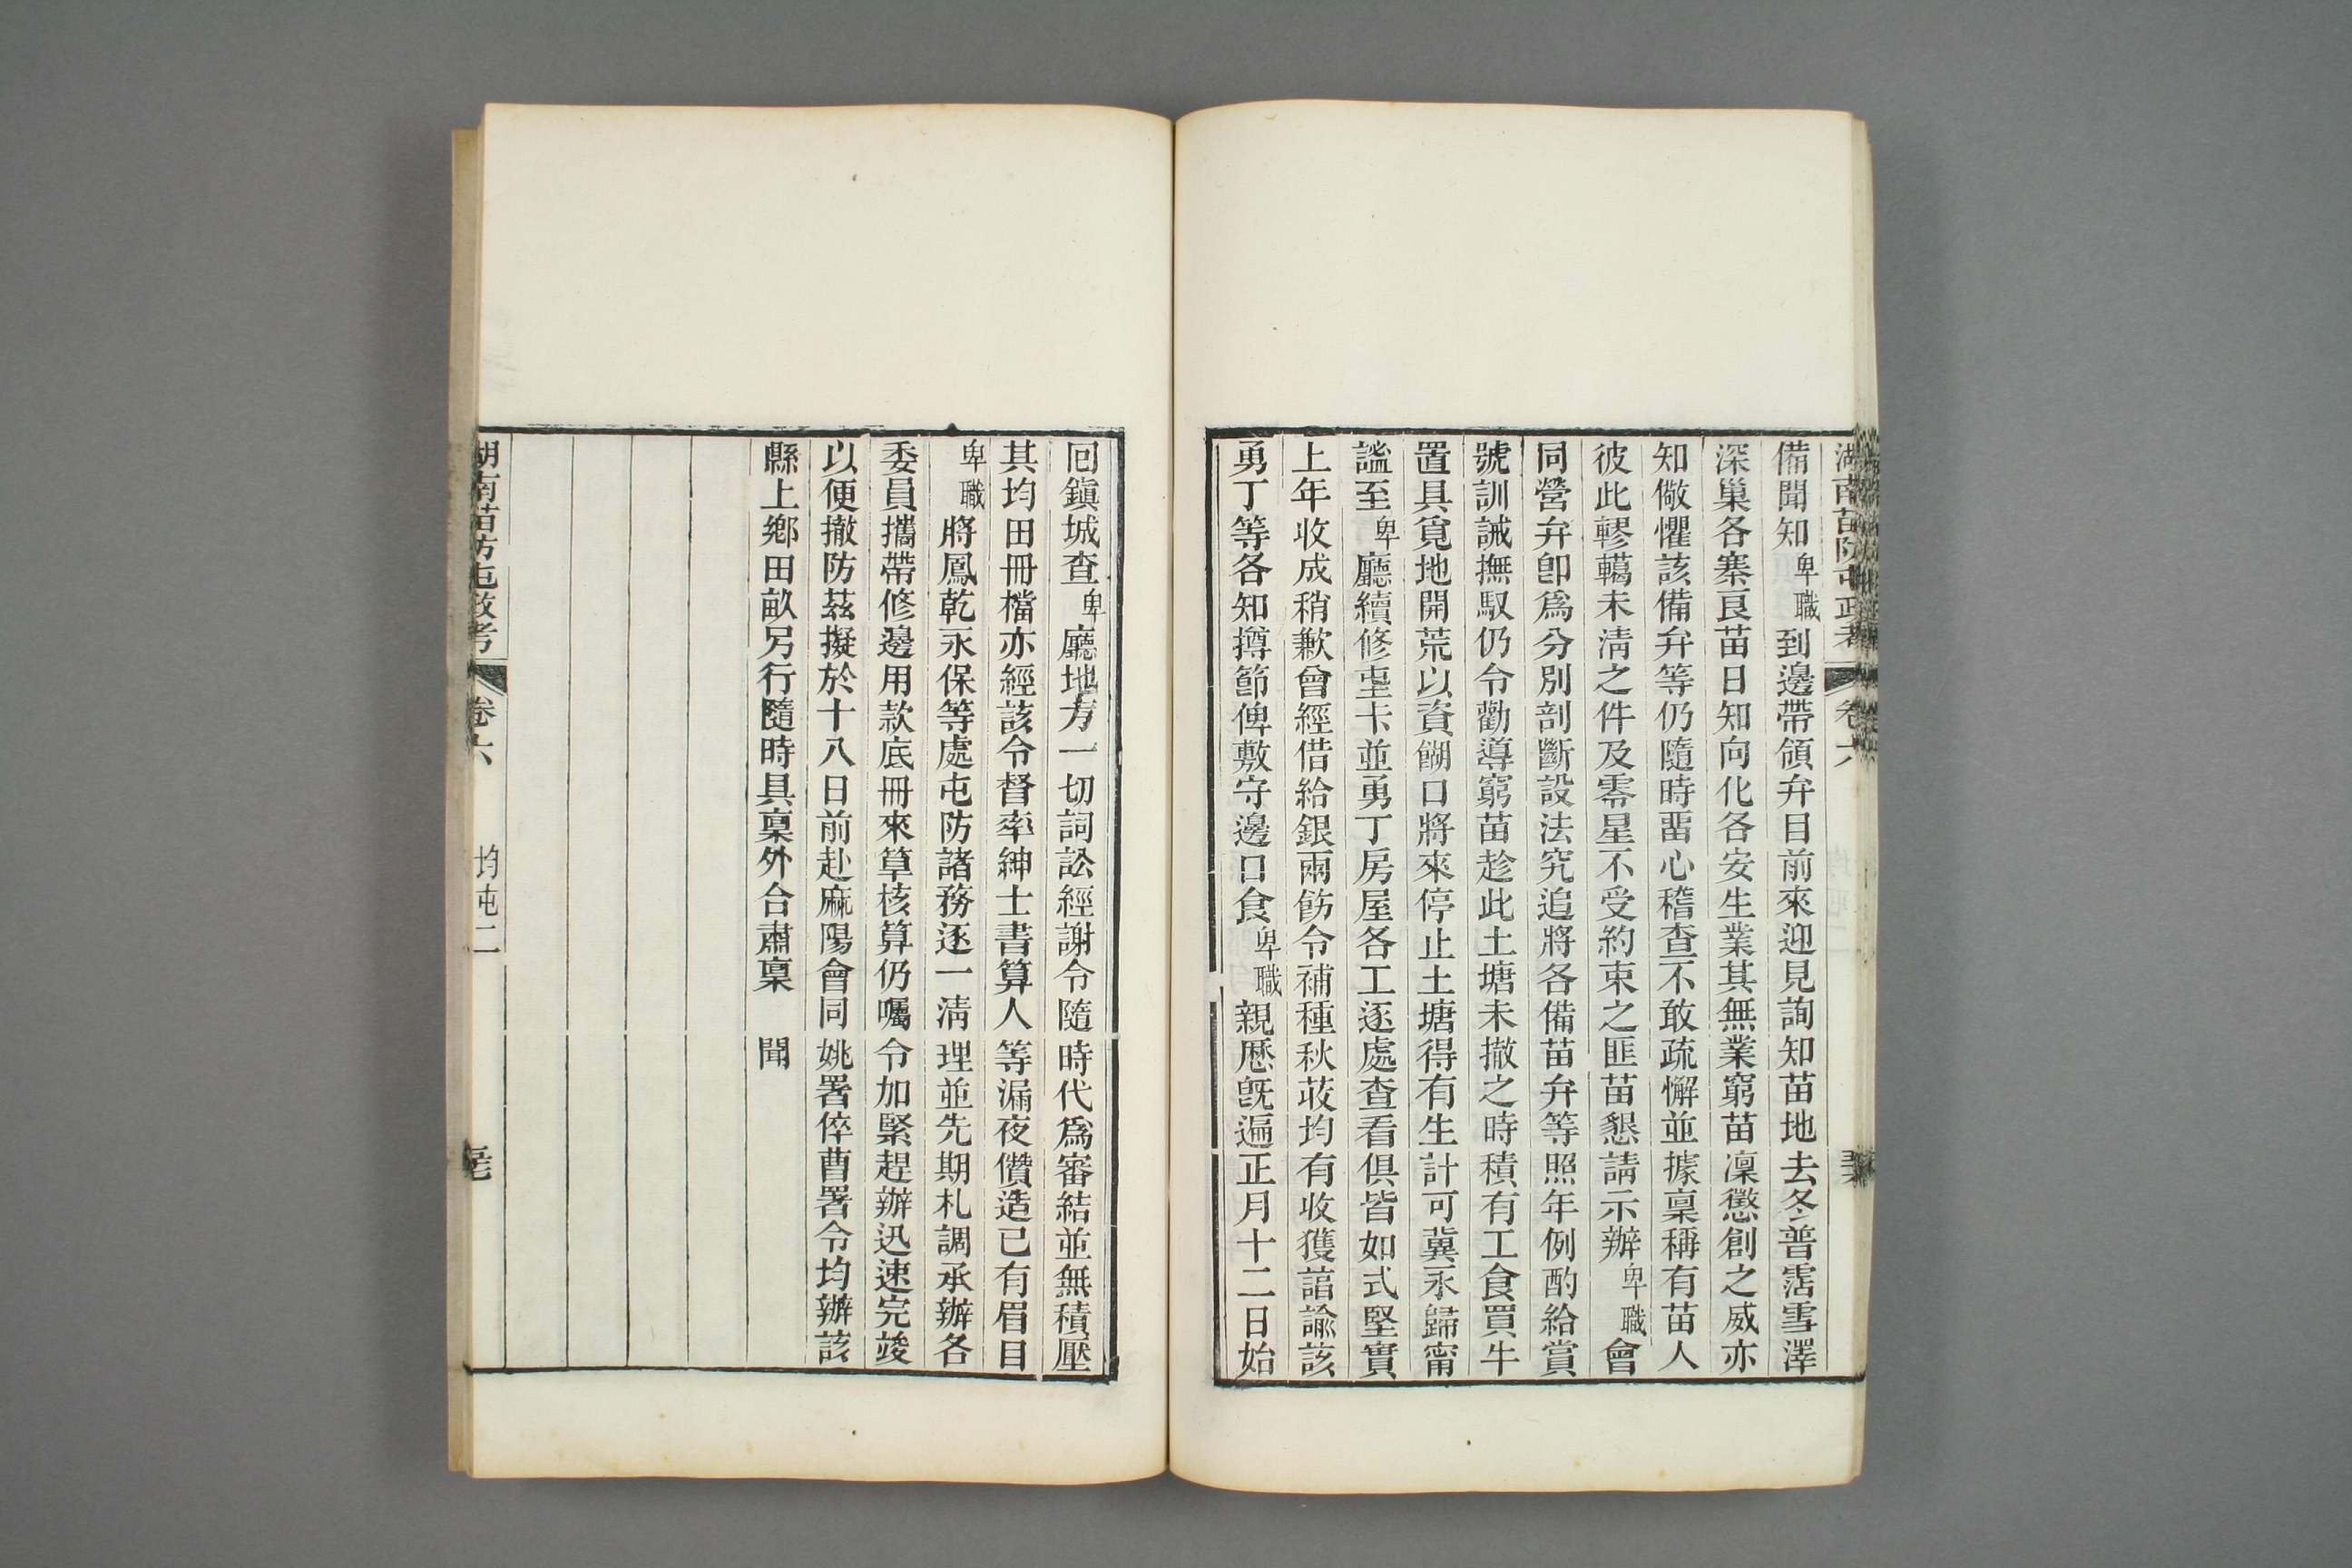 湖南苗防屯政考 卷六
備聞知卑職到邊帶領弁目前來迎見詢知苗地去冬普霑雪澤
深巢各寨良苗日知向化各安生業其無業窮苗凜懲創之威亦
知儆懼該備弁等仍隨時畱心稽查不敢疏懈並據稟稱有苗人
彼此轇轕未清之件及零星不受約束之匪苗懇請示辦卑職會
同營弁卽爲分別剖斷設法究追將各備苗弁等照年例酌給賞
號訓誡撫馭仍令勸導窮苗趁此土塘未撤之時積有工食買牛
置具覓地開荒以資餬口將來停止土塘得有生計可冀永歸甯
謐至卑廳續修屯卡並勇丁房屋各工逐處查看俱皆如式堅實
上年收成稍歉曾經借給銀兩飭令補種秋荍均有收獲諠諭該
勇丁等各知撙節俾敷守邊口食卑職親歷旣遍正月十二日始
回鎭城查卑廳地方一切詞訟經謝令隨時代爲審結並無積壓
其均田冊檔亦經該令督率紳士書算人等漏夜儹造已有眉目
卑職將鳳乾永保等處屯防諸務逐一清理並先期札調承辦各
委員攜帶修邊用款底冊來草核算仍囑令加緊趕辦迅速完竣
以便撤防茲擬於十八日前赴麻陽會同姚署倅曹署令均辦該
縣上鄉田畝另行隨時具稟外合肅稟 聞
湖南苗防屯政考 卷六 均屯二